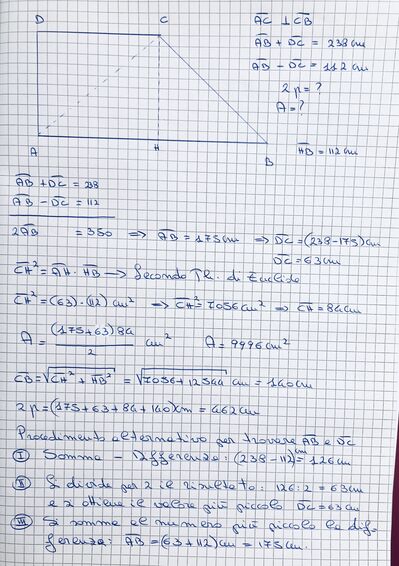 D C
A H B
AC ⊥ CB
AB + DC = 238 cm
AB - DC = 112 cm
2p = ?
A = ?
HB = 112 cm
AB + DC = 238
AB - DC = 112
2AB = 350 ⇒ AB = 175 cm ⇒ DC = (238-175) cm
DC = 63 cm
CH² = AH · HB → Secondo Th. di Euclide
CH² = (63)·(112) cm² ⇒ CH² = 7056 cm² ⇒ CH = 84 cm
A = (175+63)84 / 2 cm² A = 9996 cm²
CB = √CH² + HB² = √7056+12544 cm = 140 cm
2p = (175+63+84+140) cm = 462 cm
Procedimento alternativo per trovare AB e DC
I Somma - Differenza: (238-112) cm = 126 cm
II Si divide per 2 il risultato: 126:2 = 63 cm
e si ottiene il valore più piccolo DC = 63 cm
III Si somma al numero più piccolo la dif-
ferenza: AB = (63+112) cm = 175 cm.